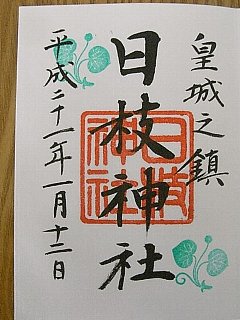 皇城之鎮
日枝神社
日枝神社
平成二十一年一月十二日